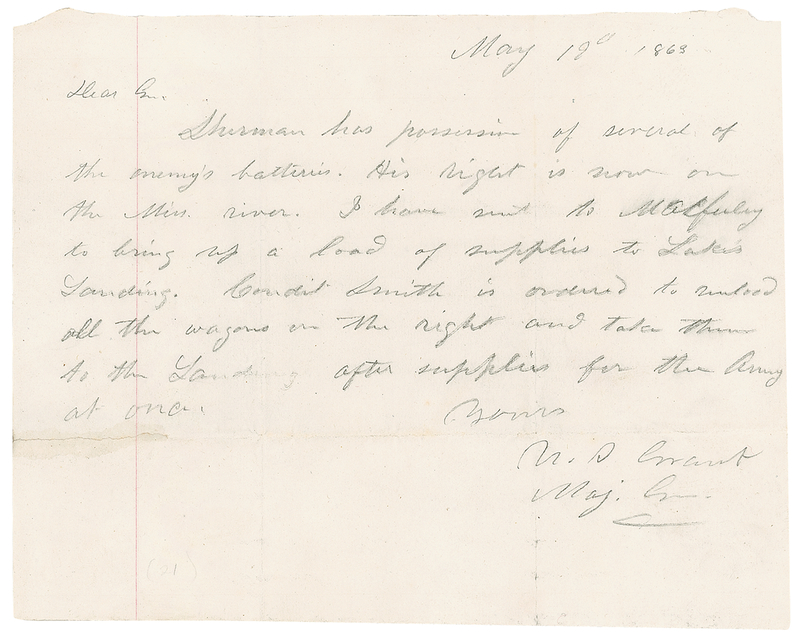 May 19th 1863
Dear Gn.
Sherman has possession of several of
the enemy's batteries. His right is now on
the Miss. river. I have sent to
to bring up a load of supplies to Lake's
Landing. Condit Smith is ordered to unload
all the wagons on the right and take them
to the Landing after supplies for the Army
at once.
Yours
U. S. Grant
Maj. Gn.